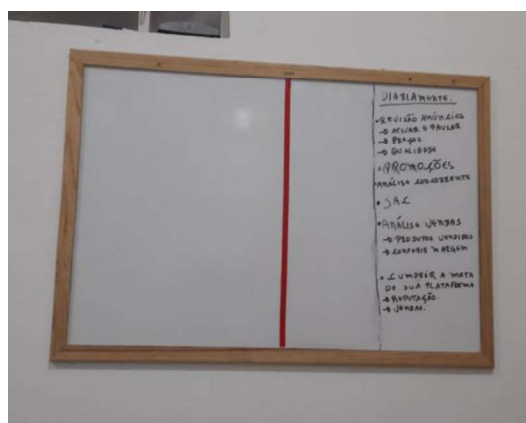 DIARIAMENTE.
• REVISÃO ANÚNCIOS
→ ATIVAR E PAUSAR
→ PREÇOS
→ QUALIDADE
• PROMOÇÕES
• ANÁLISE CONCORRENTE
• SAC
• ANÁLISE VENDAS
→ PRODUTOS VENDIDOS
→ CONFERIR MARGEM
• CUMPRIR A META
DE SUA PLATAFORMA
→ REPUTAÇÃO.
→ VENDAS.